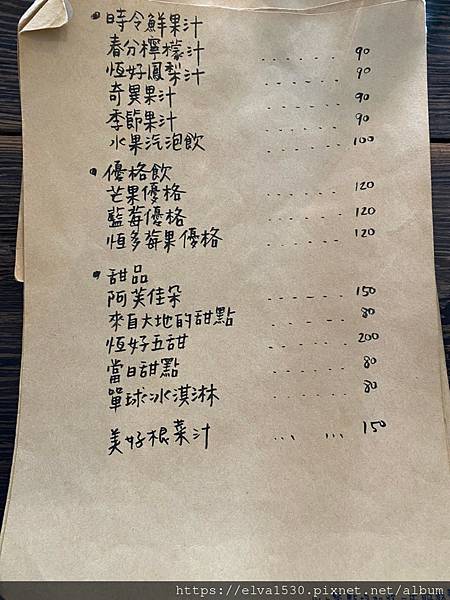 • 時令鮮果汁
春分檸檬汁 ...... 90
恆好鳳梨汁 ...... 90
奇異果汁 ...... 90
季節果汁 ...... 90
水果汽泡飲 ...... 100
• 優格飲
芒果優格 ...... 120
藍莓優格 ...... 120
恆多莓果優格 ...... 120
• 甜品
阿芙佳朵 ...... 150
來自大地的甜點 ...... 80
恆好五甜 ...... 200
當日甜點 ...... 80
單球冰淇淋 ...... 80
美好根菜汁 ... ... 150
https://elva1530.pixnet.net/album